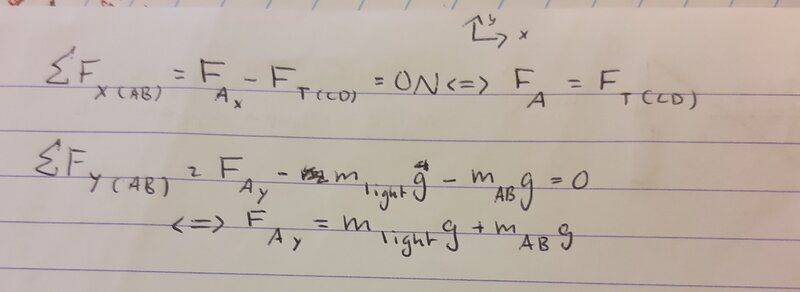 y
x
ΣF_X(AB) = F_Ax - F_T(CD) = 0N <=> F_A = F_T(CD)
ΣF_Y(AB) = F_Ay - m_light g - m_AB g = 0
<=> F_Ay = m_light g + m_AB g